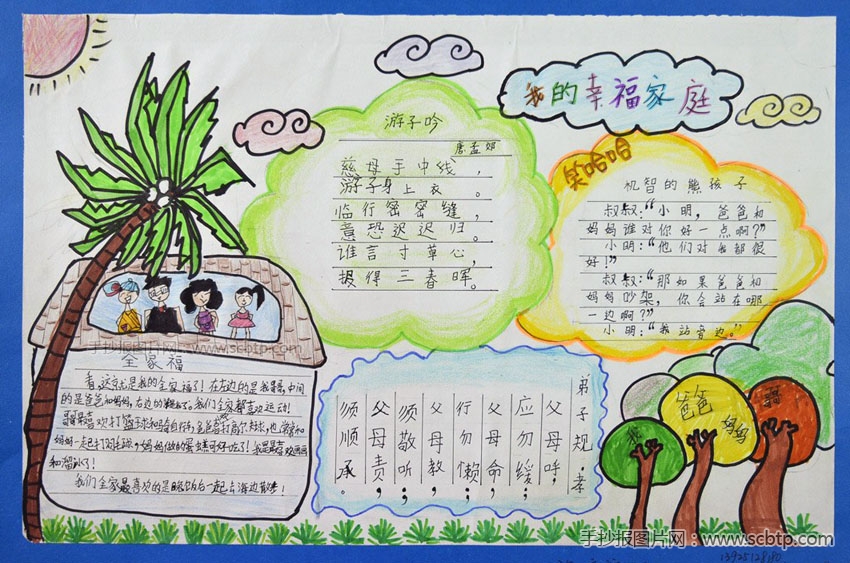 我的幸福家庭
游子吟
唐孟郊
慈母手中线,
游子身上衣。
临行密密缝,
意恐迟迟归。
谁言寸草心,
报得三春晖。
笑哈哈
机智的熊孩子
叔叔:“小明,爸爸和
妈妈谁对你好一点啊?”
小明:“他们对我都很
好!”
叔叔:“那如果爸爸和
妈妈吵架,你会站在哪
一边啊?”
小明:“我站旁边。”
手抄报图片网:www.scbtp.com
全家福
看,这就是我的全家福了!在左边的是我,中间
的是爸爸和妈妈,右边的。我们全家都喜欢运动!
喜欢打篮球和骑自行车,爸爸喜欢打高尔夫球,也常常和
妈妈一起打羽毛球,妈妈做的蛋糕可好吃了!我最喜欢画画
和溜冰了!
我们全家最喜欢的是晚饭后一起去海边散步!
弟子规·孝
父母呼,
应勿缓,
父母命,
行勿懒,
父母教,
须敬听,
父母责,
须顺承。
我
爸爸
妈妈
手抄报图片网:www.scbtp.com